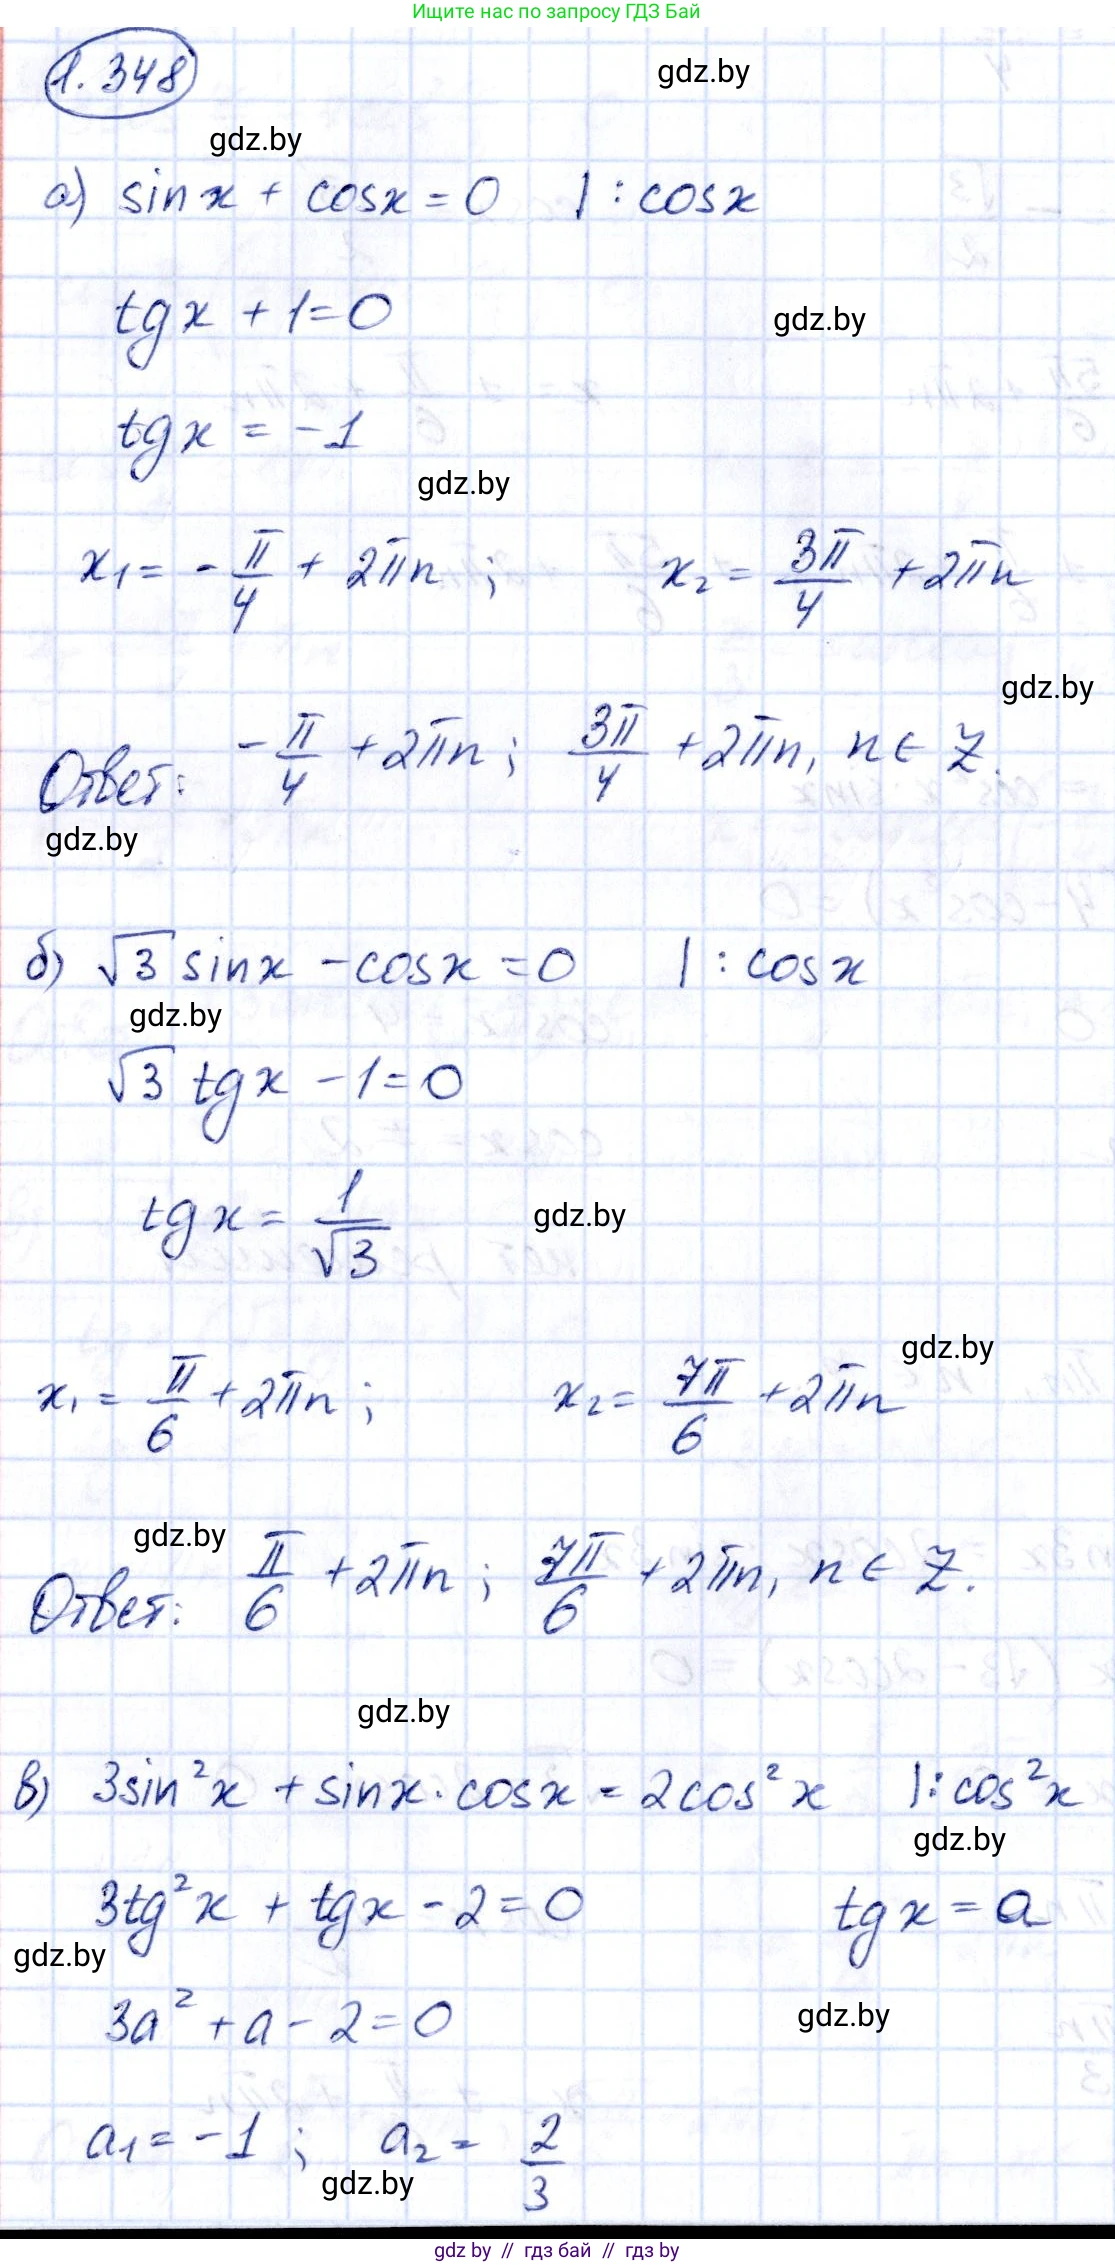 Ищите нас по запросу ГДЗ Бай
1.348
gdz.by
gdz.by
а) sin x + cos x = 0 | : cos x
tg x + 1 = 0
gdz.by
tg x = -1
gdz.by
x₁ = -π/4 + 2πn ; x₂ = 3π/4 + 2πn
gdz.by
Ответ: -π/4 + 2πn ; 3π/4 + 2πn, n ∈ Z.
gdz.by
б) √3 sin x - cos x = 0 | : cos x
gdz.by
√3 tg x - 1 = 0
tg x = 1/√3
gdz.by
gdz.by
x₁ = π/6 + 2πn ; x₂ = 7π/6 + 2πn
gdz.by
Ответ: π/6 + 2πn ; 7π/6 + 2πn, n ∈ Z.
gdz.by
в) 3sin²x + sin x · cos x = 2cos²x | : cos²x
gdz.by
3tg²x + tg x - 2 = 0 tg x = a
gdz.by
3a² + a - 2 = 0
gdz.by
a₁ = -1 ; a₂ = 2/3
gdz.by
gdz by // гдз бай // гдз by